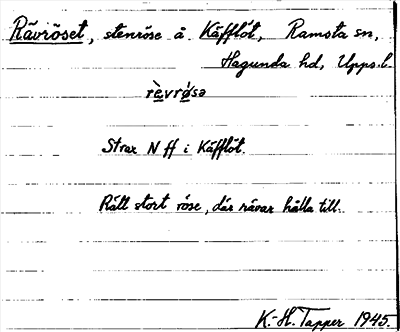 Rävröset, stenröse å Käfflöt, Ramsta sn,
Hagunda hd, Upps. l.
rèvrø̀sə
Strax N ff i Käfflöt.
Räll stort röse, där rävar hålla till.
K.-H. Tapper 1945.